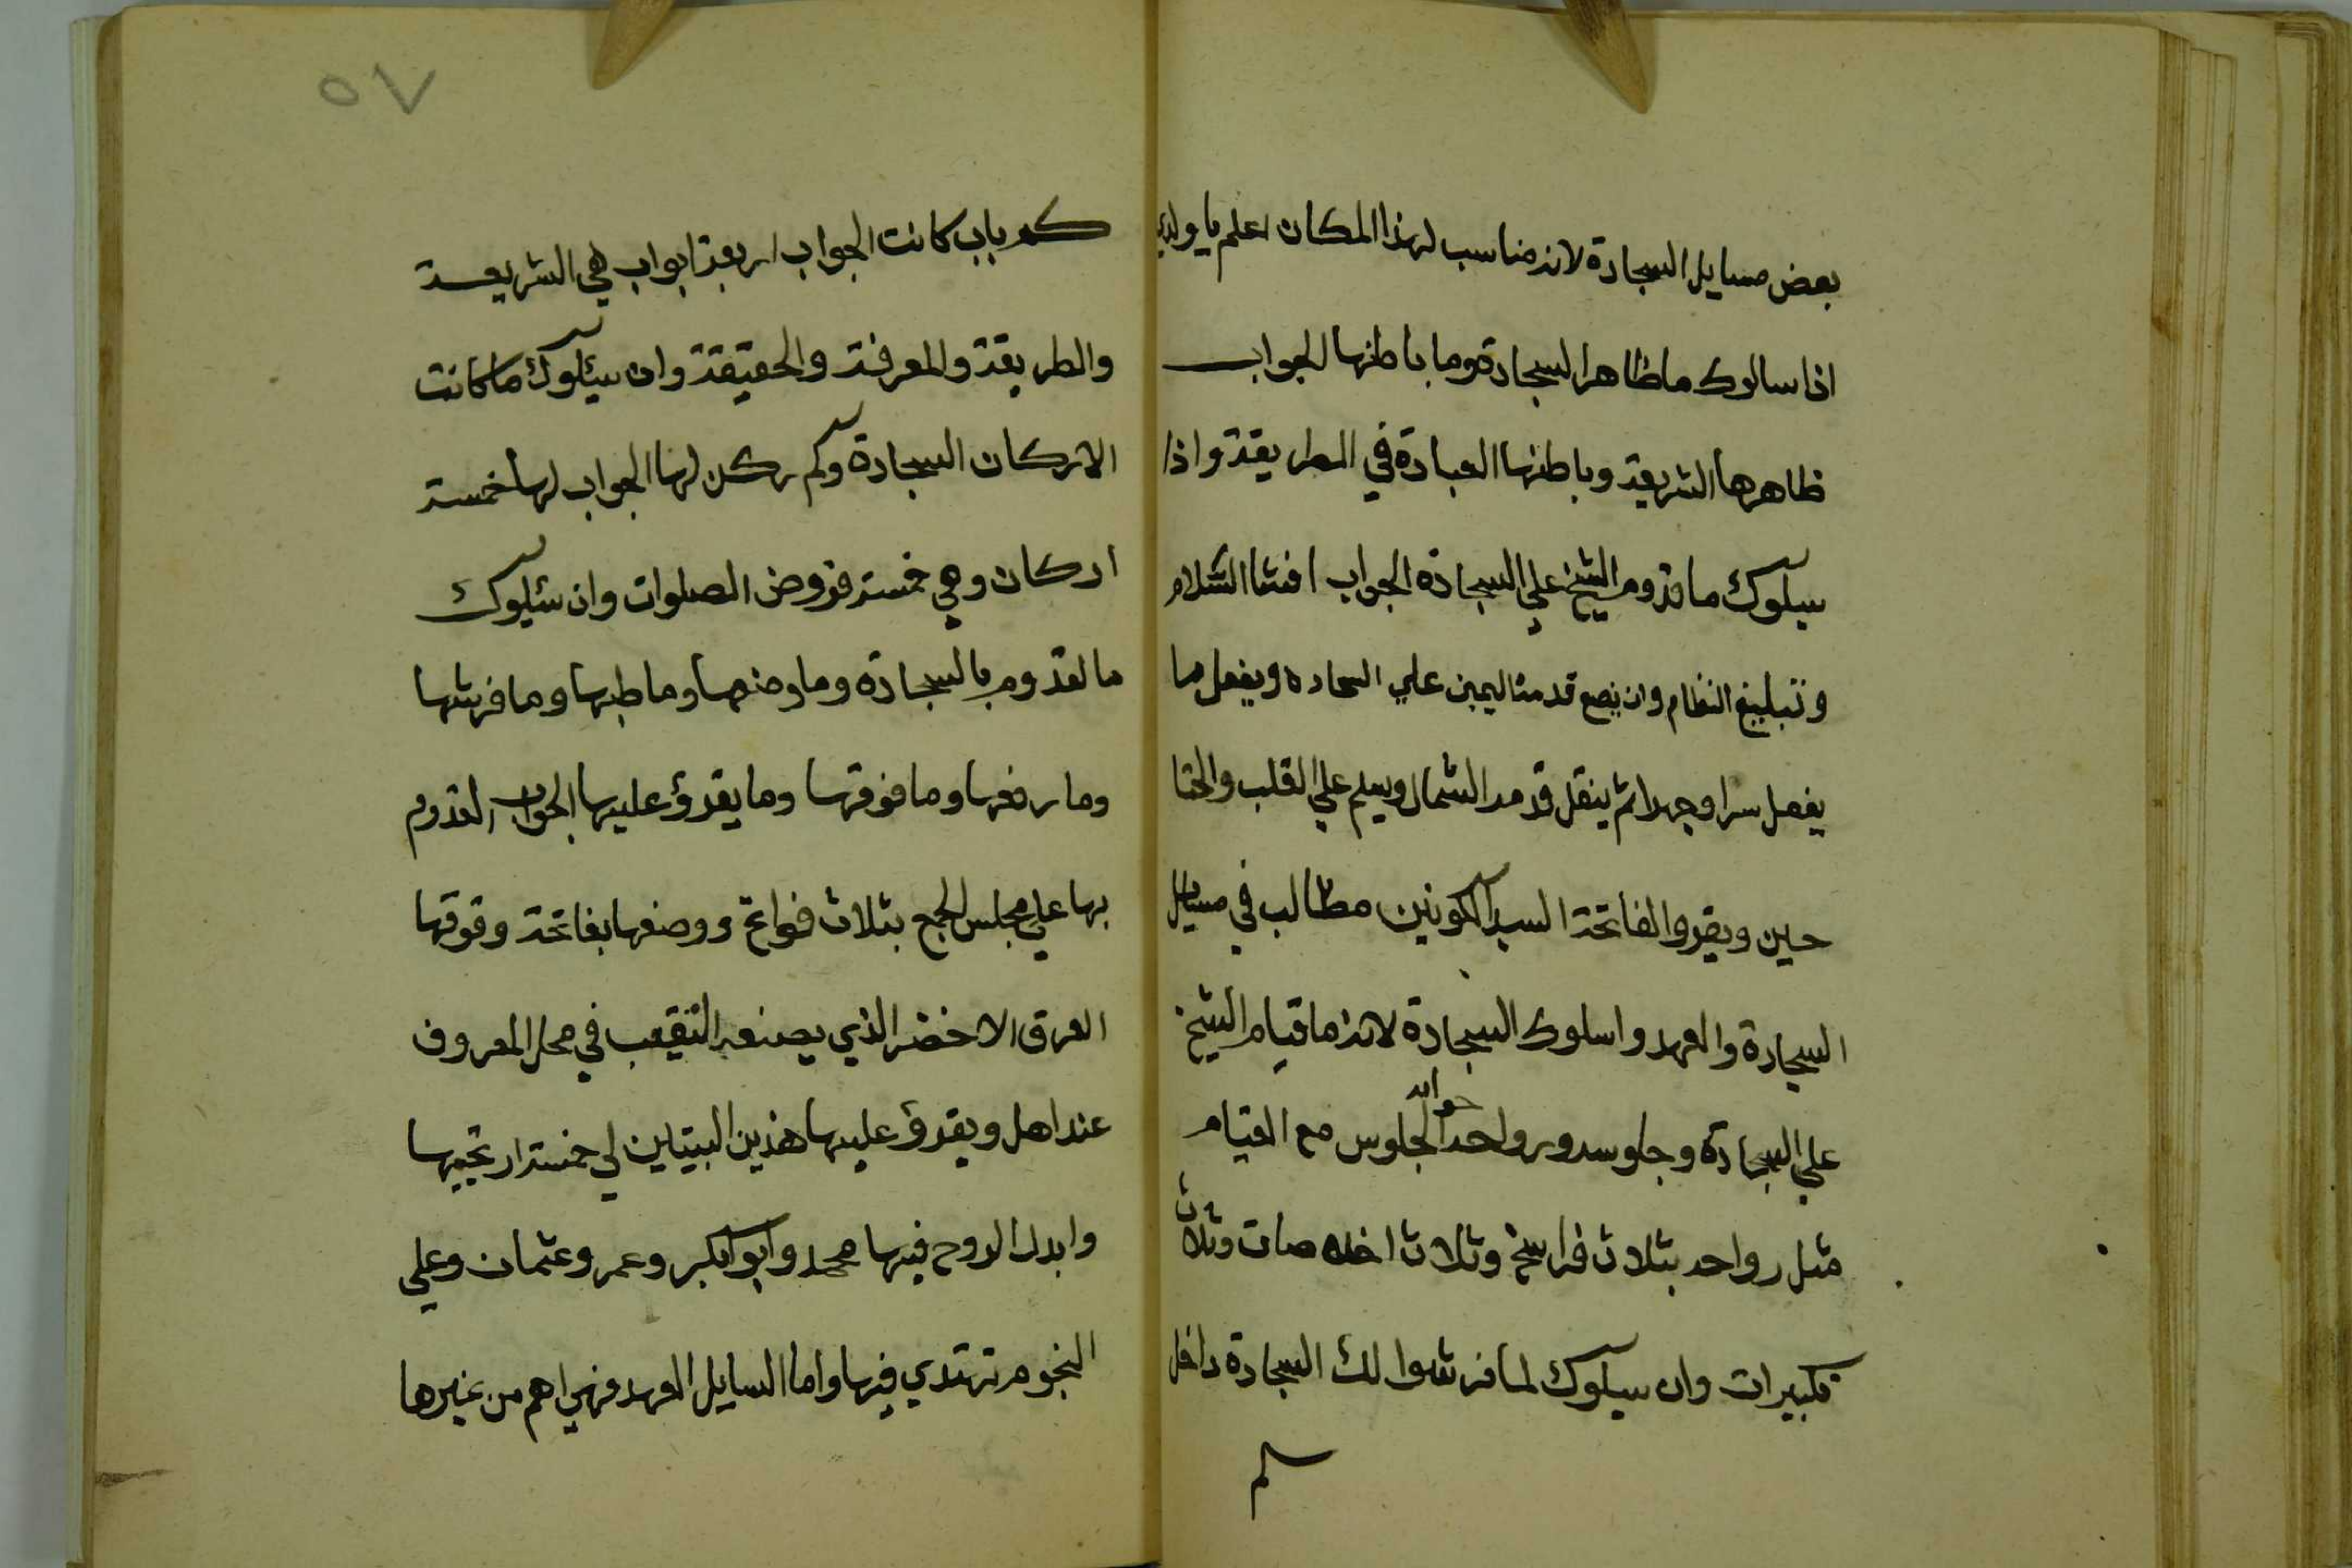 بعض مسايل السجادة لانه مناسب لهذا المكان اعلم يا ولدي
اذا سالوك ما ظاهر السجادة وما باطنها الجواب
ظاهرها الشريعة وباطنها العبادة في الطريقة واذا
سيلوك ما قدوم الشيخ علي السجادة الجواب افشا السلام
وتبليغ النظام وان يضع قدمه اليمين علي السجاده ويفعل ما
يفعل سرا وجهرا ثم ينقل قدمه الشمال ويسلم علي القلب والجنا
حين ويقروا الفاتحة السيد الكونين مطالب في مسايل
السجادة والعهد واسلوك السجادة لانه ما قيام الشيخ
علي السجادة وجلوسه ورواحه جوابه الجلوس مع القيام
مثل رواحه بثلاث فراسخ وثلاث اخلاصات وثلاث
تكبيرات وان سيلوك لما فرشوا لك السجادة داخل
كم
كم باب كانت الجواب اربعة ابواب هي الشريعة
والطريقة والمعرفة والحقيقة وان سيئلوك ما كانت
الاركان السجادة وكم ركن لها الجواب لها خمسة
اركان وهي خمسة فروض الصلوات وان سئلوك
ما لقدوم بالسجادة وما وضعها وما طيها وما فرشها
وما رفعها وما فوقها وما يقرؤ عليها الجواب القدوم
بها علي مجلس الحج بثلاث فواتح ووضعها بفاتحة وفوقها
العرق الاخضر الذي يصنعه النقيب في محل المعروف
عند اهل ويقرؤ عليها هذين البيتاين لي خمسة ارتجيها
وابدل الروح فيها محمد وابو ابكر وعمر وعثمان وعلي
النجوم تهتدي فيها واما السايل العهد فهي اهم من غيرها
٥٧